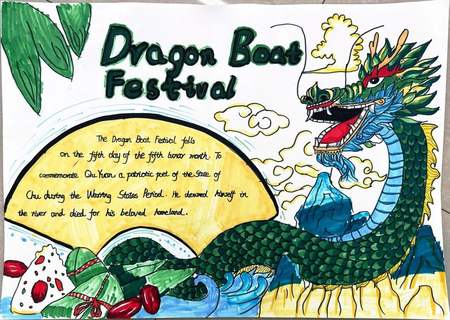 Dragon Boat
Festival
The Dragon Boat Festival falls
on the fifth day of the fifth lunar month. To
commemorate Qu Yuan a patriotic poet of the State of
Chu during the Warring States Period. He drowned himself in
the river and died for his beloved homeland.